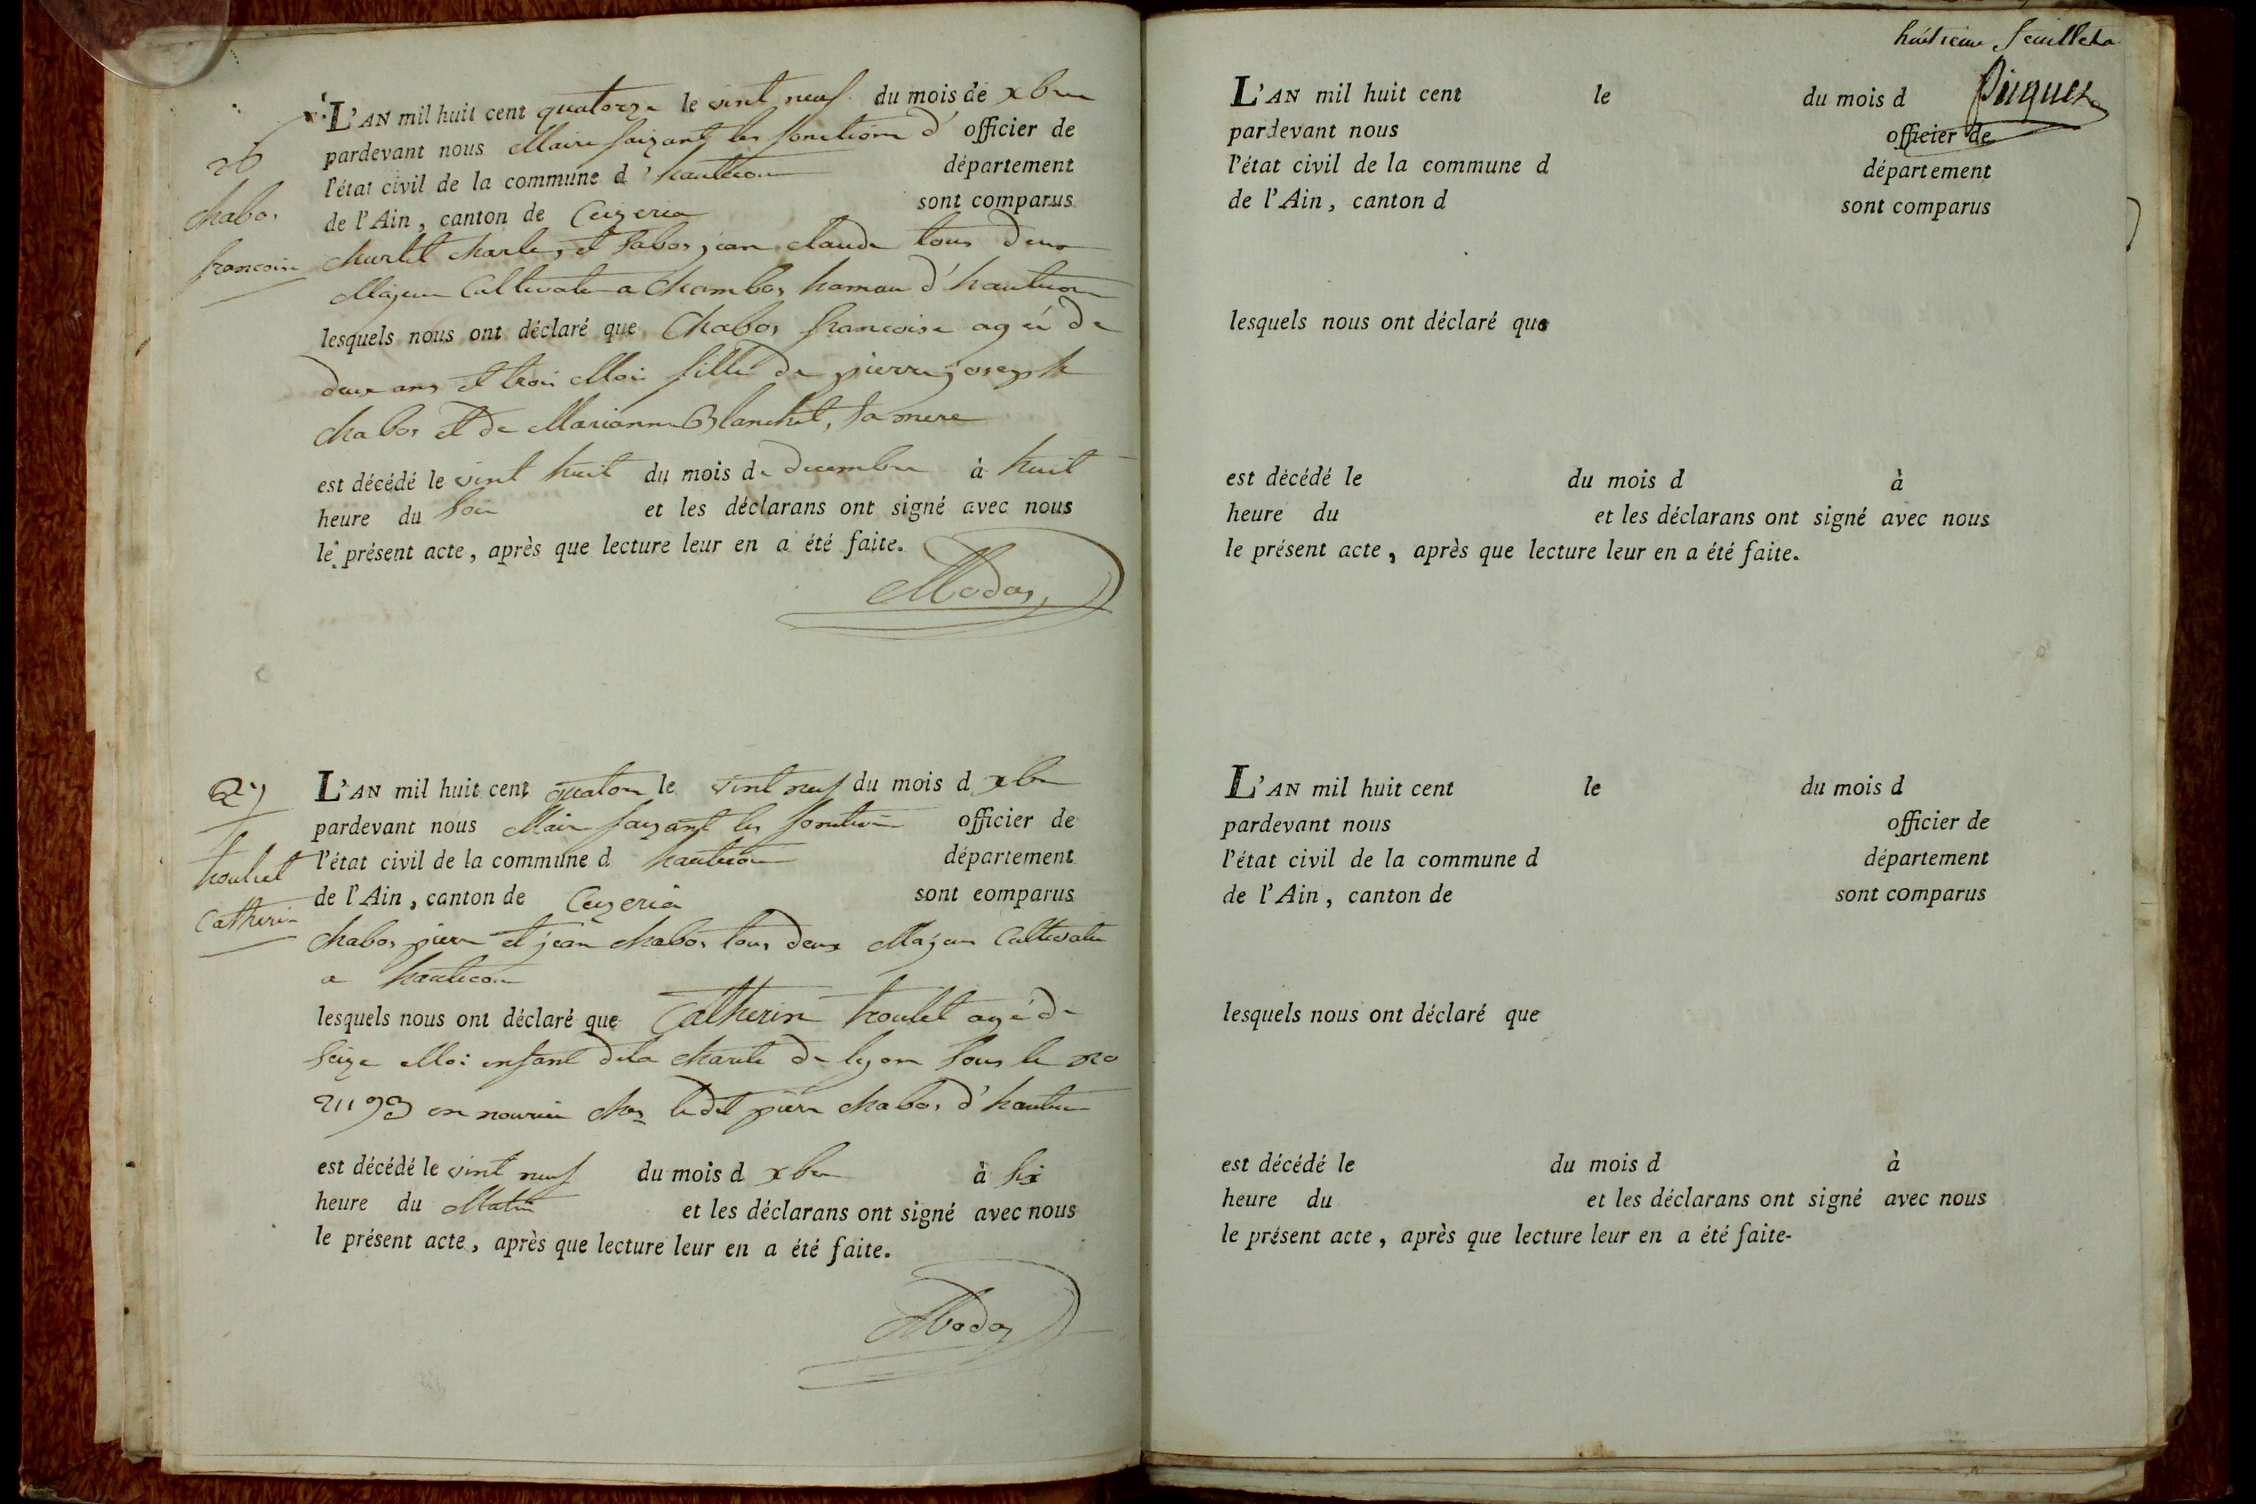 26
chabos
francoise
L'AN mil huit cent quatorze le vint neuf du mois de xbre
pardevant nous Maire faizant les fonctions d' officier de
l'état civil de la commune d'hautecour département
de l'Ain, canton de Ceyzeria sont comparus
charles et jean claude tous deux
Majeur Cultivateur a Chambos hamau d'hautecour
lesquels nous ont déclaré que Chabos francoise agée de
deux ans et trois Moi fille de pierre joseph
chabos et de Marianne Blanchet, sa mere
est décédé le vint huit du mois de decembre à huit
heure du soir et les déclarans ont signé avec nous
le présent acte, après que lecture leur en a été faite.
Modas
27
troulet
Catherin
L'AN mil huit cent quatorze le vint neuf du mois d xbre
pardevant nous Maire faizant les fonction officier de
l'état civil de la commune d hautecour département
de l'Ain, canton de Ceyzeria sont eomparus
chabos pierre et jean chabos tous deux Majeur Cultivateur
a hautecour
lesquels nous ont déclaré que Catherin troulet agé de
seize Moi enfant dela charité de lyon sous le no
21193 en nourice chez ledit pierre chabos d'hautecour
est décédé le vint neuf du mois d xbre à
heure du Matin et les déclarans ont signé avec nous
le présent acte, après que lecture leur en a été faite.
Modas
huitieme feuillet
Piquet
L'AN mil huit cent le du mois d
pardevant nous officier de
l'état civil de la commune d département
de l'Ain, canton d sont comparus
lesquels nous ont déclaré que
est décédé le du mois d à
heure du et les déclarans ont signé avec nous
le présent acte, après que lecture leur en a été faite.
L'AN mil huit cent le du mois d
pardevant nous officier de
l'état civil de la commune d département
de l'Ain, canton de sont comparus
lesquels nous ont déclaré que
est décédé le du mois d à
heure du et les déclarans ont signé avec nous
le présent acte, après que lecture leur en a été faite-